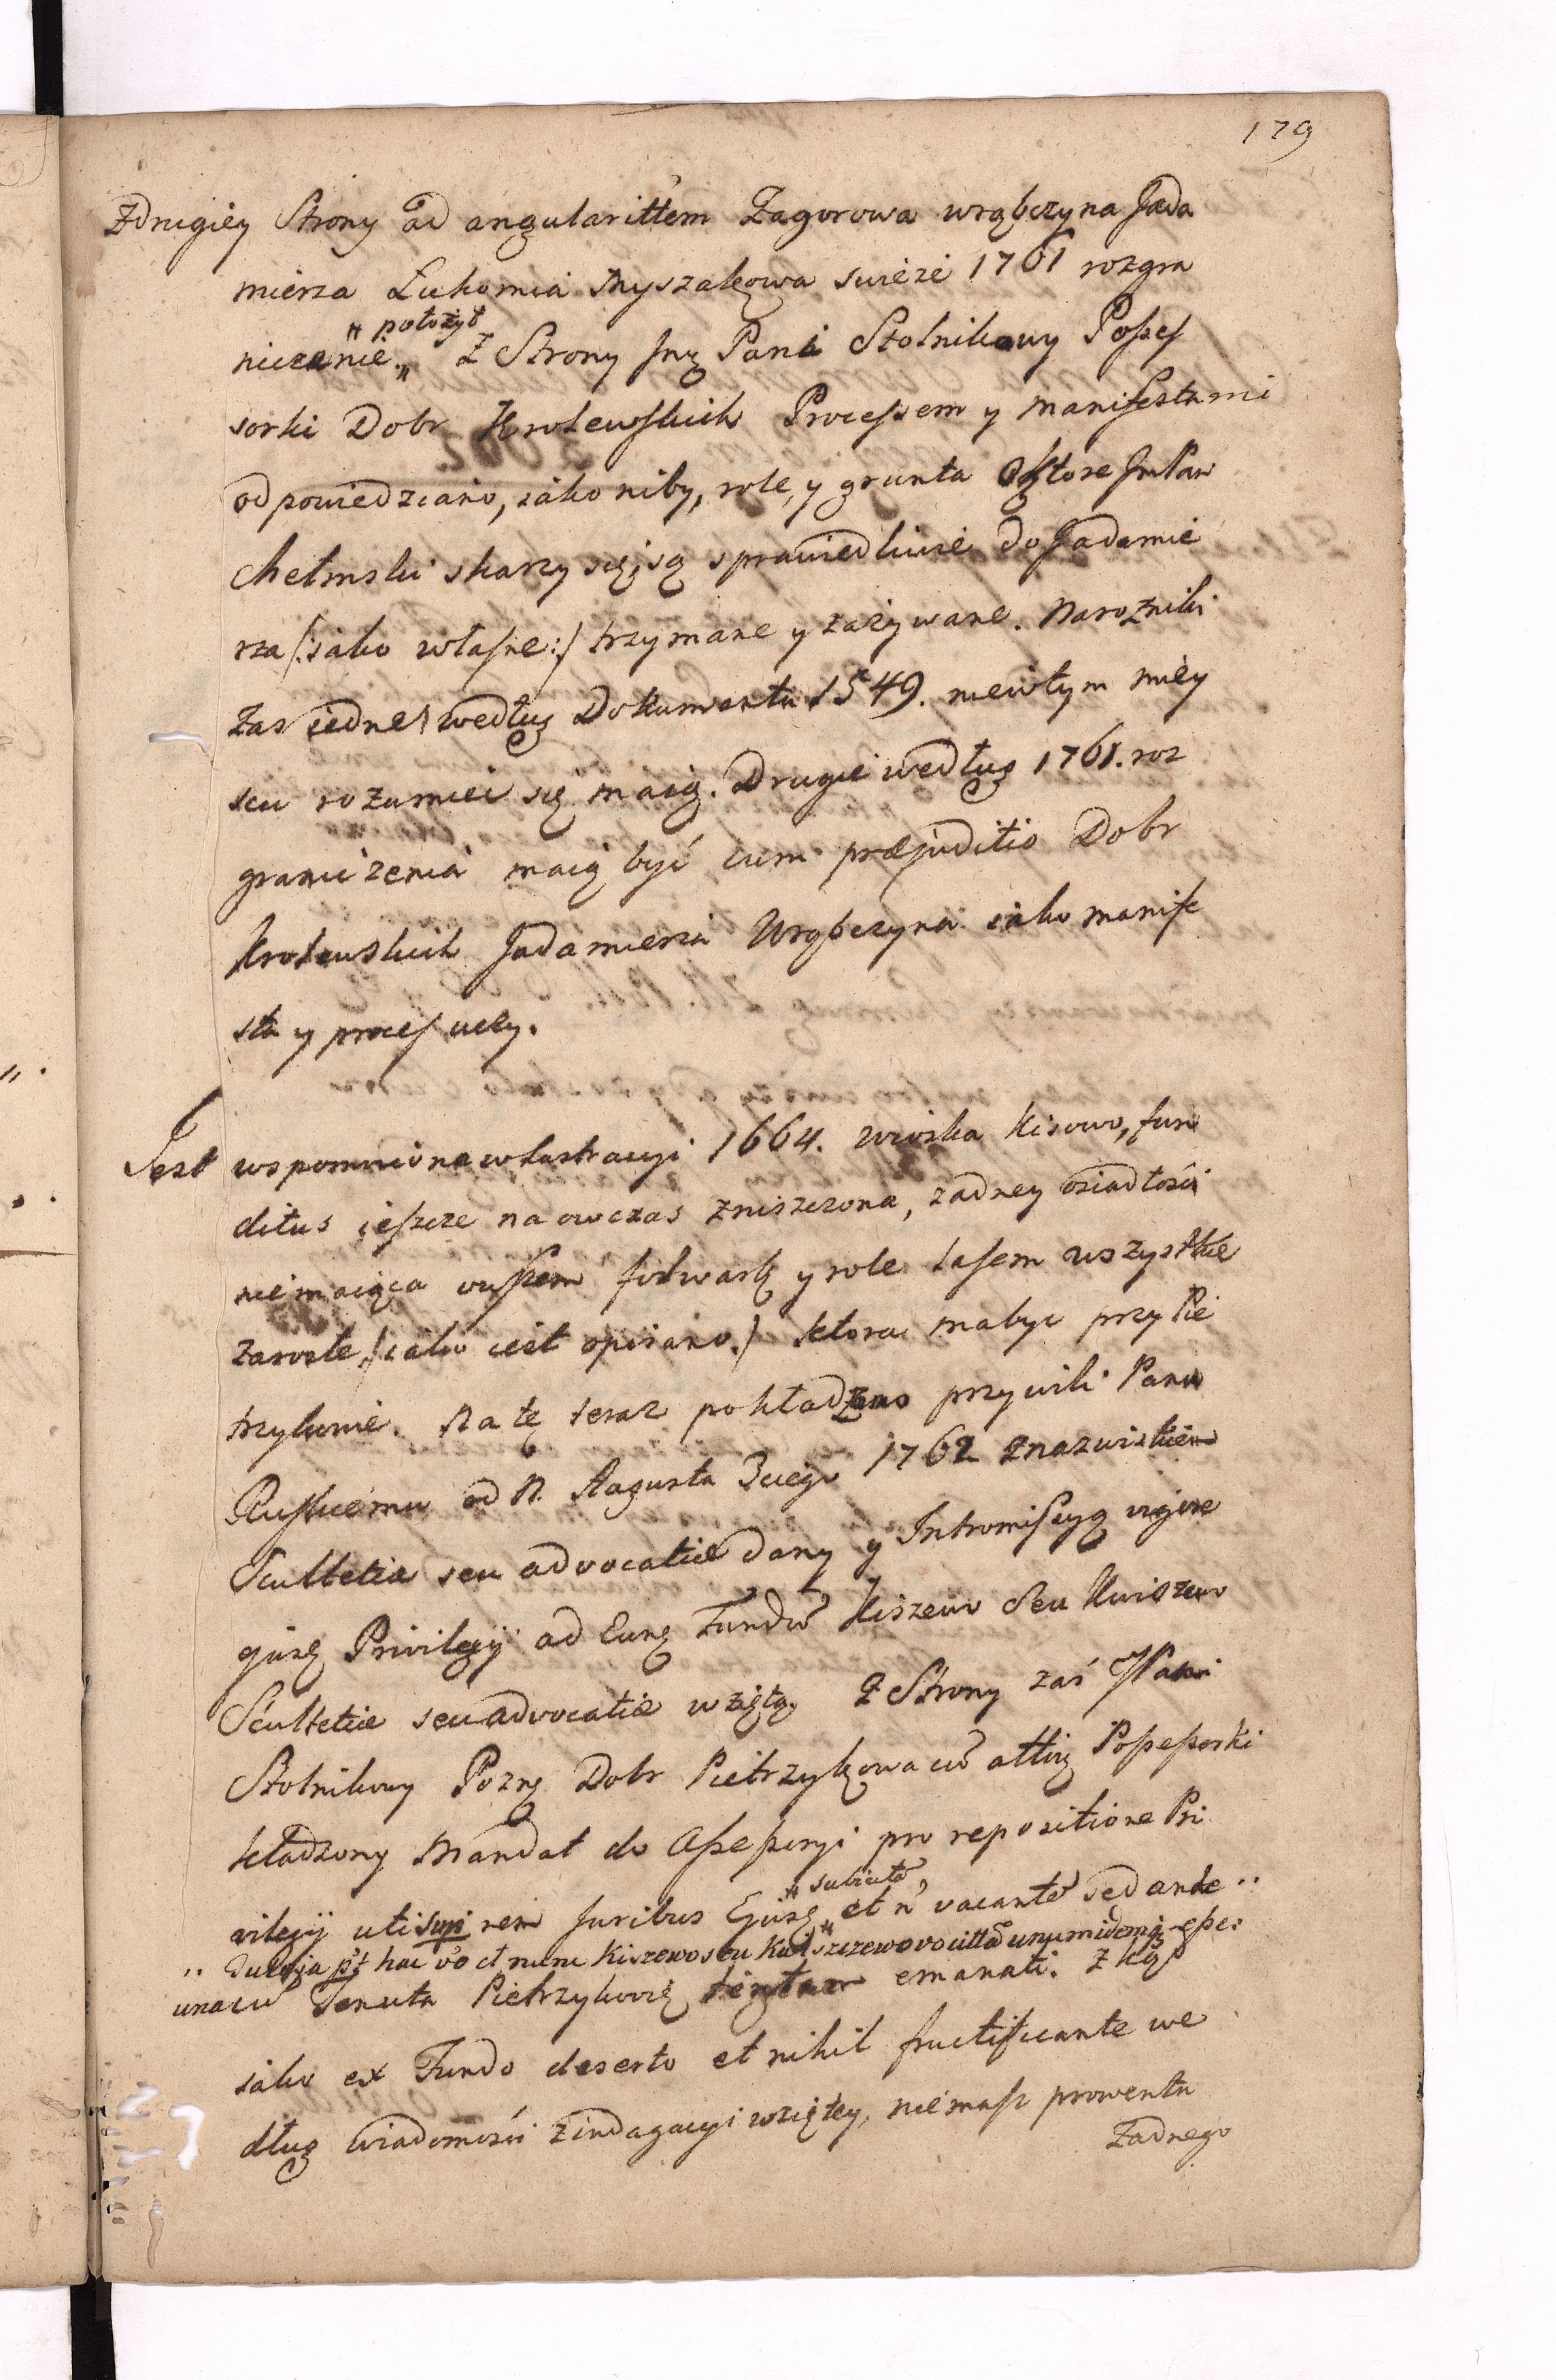 179
Zdrugiey Strony ad angularitem Zagorowa wrąbczyna Jada
mierza Łukomia Myszakowa swieze 1761 rozgra
niczenie „ położył „ Z Strony Jmę Pani Stolnikowy Possess
sorki Dobr Krolewskich Processem y manifestami
odpowiedziano, iako niby, role, y grunta o ktore JmPan
Chełmski skarzy się, są sprawiedliwie do Jadamie
rza /:iako własne:/ trzymane y zazywane. Narozniki
zas iedne według Dokumentu 1549. niewtym miey
scu rozumiec się maią. Drugie według 1761. roz
graniczenia maią być cum præjuditio Dobr
krolewskich Jadamierza Wrąbczyna iako manife
sta y process uczy.
Jest wspomniona w lustracyi 1664. wioska Kisewo, fun
ditus ieszcze na owczas zniszczona, zadney osiadłości
nie maiąca owszem folwark y role lasem wszystkie
zarosłe, /iako iest opisano./ ktora ma byc przy Pie
trzykowie. Na tę teraz pokładano przywiley Panu
Ruskiemu od N. Augusta 3ciego 1762 z nazwiskiem
Scultetiæ seu advocatiæ dany y Intromissyą vigore
ejusq Privilegij ad Eunq Fundu Kiszewo Seu Kwiszewo
Scultetiæ seu advocatiæ wziętą. Z Strony zaś JPani
Stolnikowy Pozn Dobr Pietrzykowa cu attin Possessorki
kładzony Mandat do Assessoryi pro repositione Pri
vilegij uti supi rem Juribus Ejusq „ subiectã, „ et ñ vacantẽ sed ande ..
.. hac et nunc Kiszewo seu Kwiszczewo vocitata unum idemq esse:
unacu Tenuta Pietrzykowię emanati. Z kąd
iako ex Fundo deserto et nihil fructificante we
dług wiadomości z indagacyi wziętey, nie masz prowentu
Zadnego